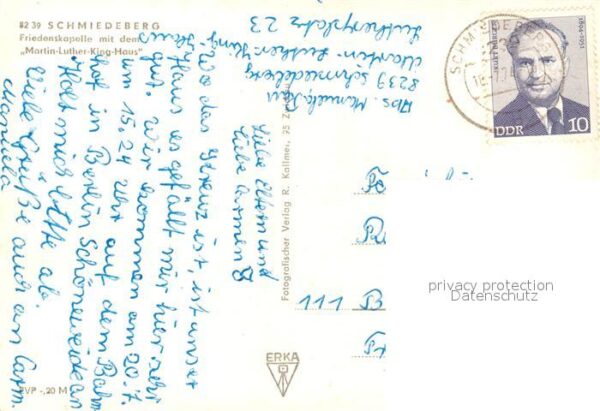 8239 SCHMIEDEBERG
Friedenskapelle mit dem
„Martin-Luther-King-Haus"
Abs. Manuela
Martin-Luther-King-Haus
8239 Schmiedeberg
Lutherplatz 23
Liebe Eltern und
Liebe Carmen!
Wo das Kreuz ist, ist unser
Haus es gefällt mir hier sehr
gut. Wir kommen am 20.7.
um 15.24 Uhr auf dem Bahn
hof in Berlin Schöneweide an
Holt mich bitte ab.
Viele Grüße auch an Carm.
Manuela
EVP -,20 M
Fotografischer Verlag R. Kallmer, 95
ERKA
SCHMIEDEBERG
KURT BÜRGER
1894-1951
DDR
10
111
B
privacy protection
Datenschutz